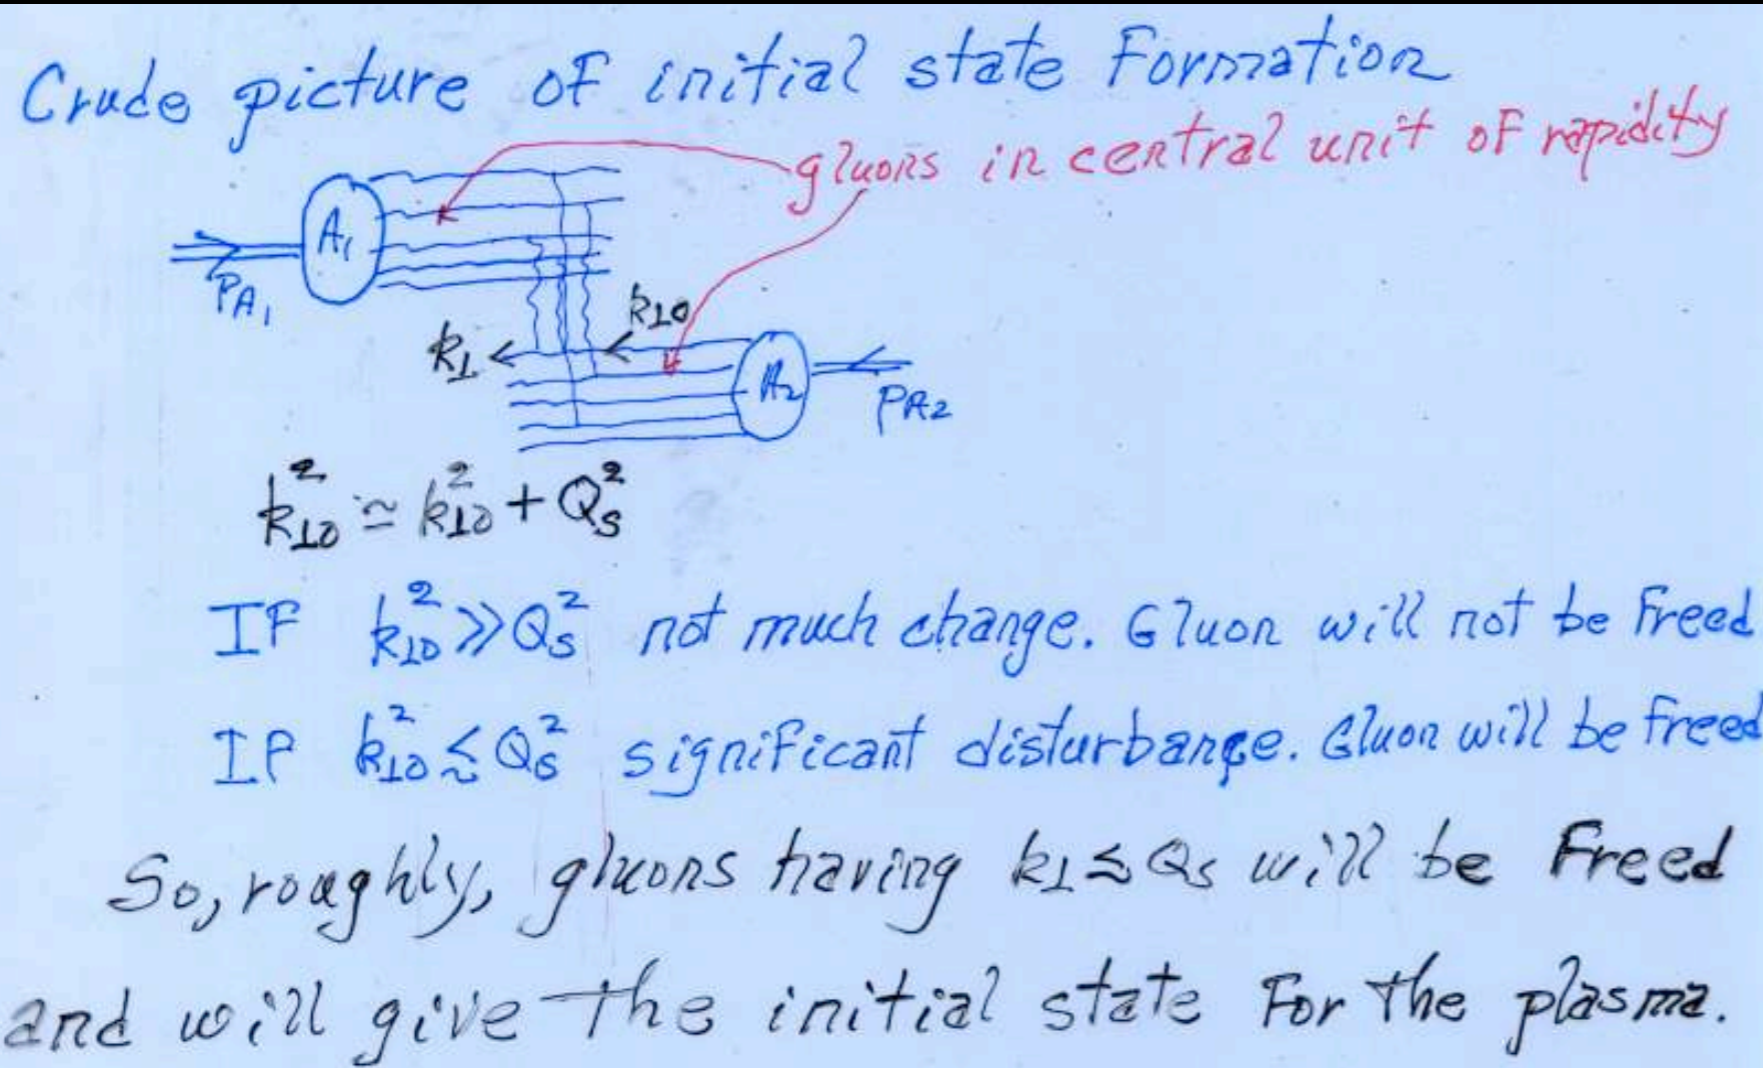 Crude picture of initial state formation
gluons in central unit of rapidity
A₁
P_A₁
k⊥₀
k⊥
A₂
P_A₂
k⊥₀² ≃ k⊥₀² + Qs²
If k⊥₀² ≫ Qs² not much change. Gluon will not be freed
If k⊥₀² ≲ Qs² significant disturbance. Gluon will be freed
So, roughly, gluons having k⊥ ≲ Qs will be freed
and will give the initial state for the plasma.